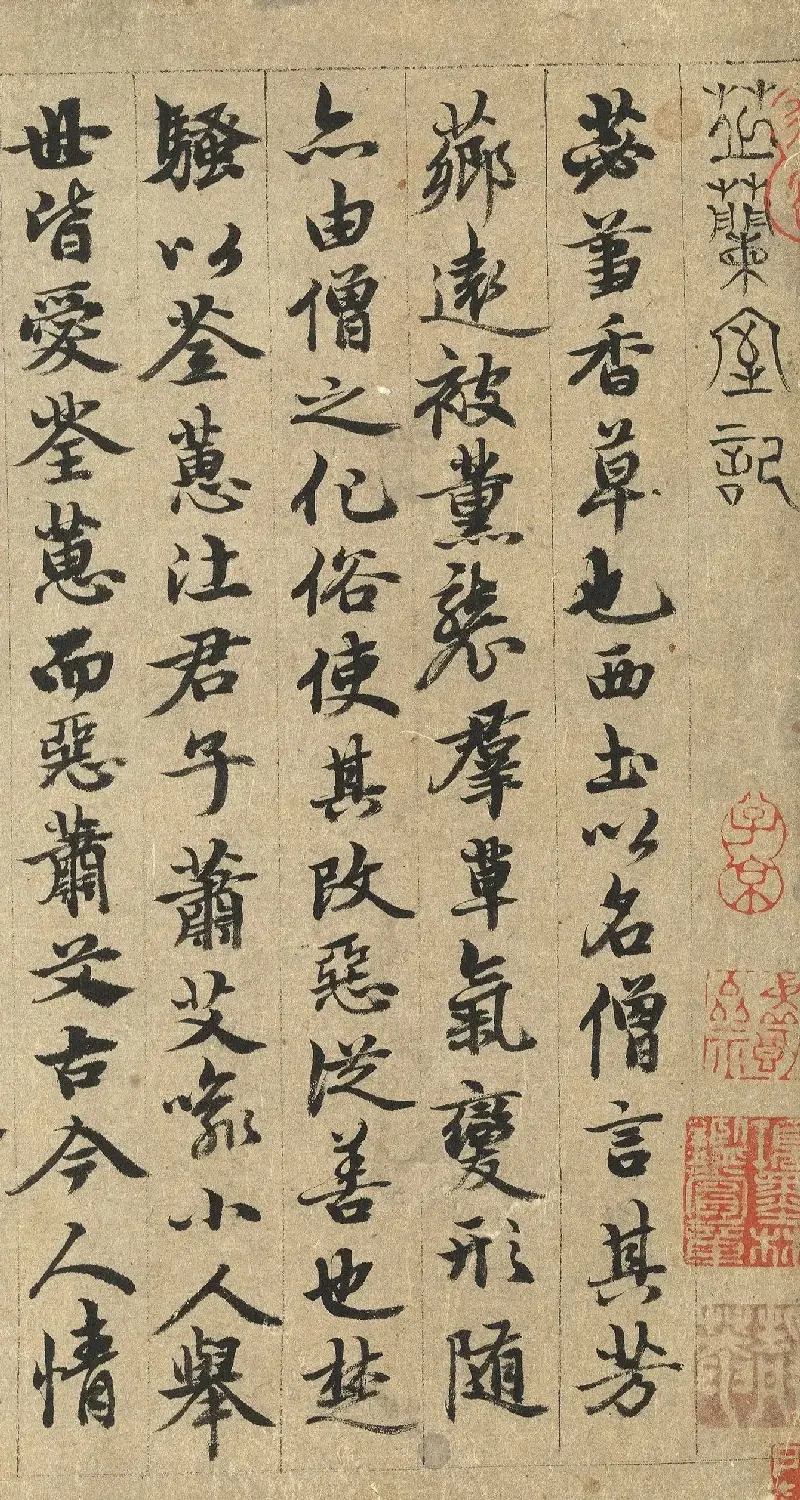 芝蘭室記
苾芻香草也西土以名僧言其芳
薌遠被薰襲羣草氣變形隨
亦由僧之化俗使其改惡從善也楚
騷以荃蕙注君子蕭艾喻小人舉
世皆愛荃蕙而惡蕭艾古今人情
子京